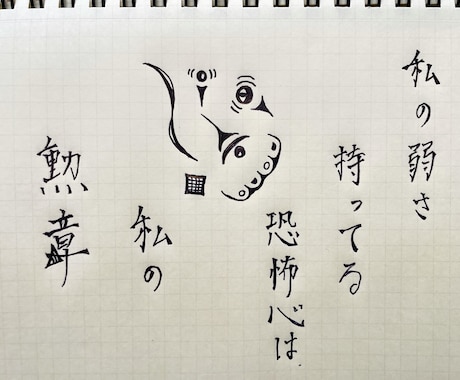 私の弱さ
持ってる
恐怖心は
私の
勲章